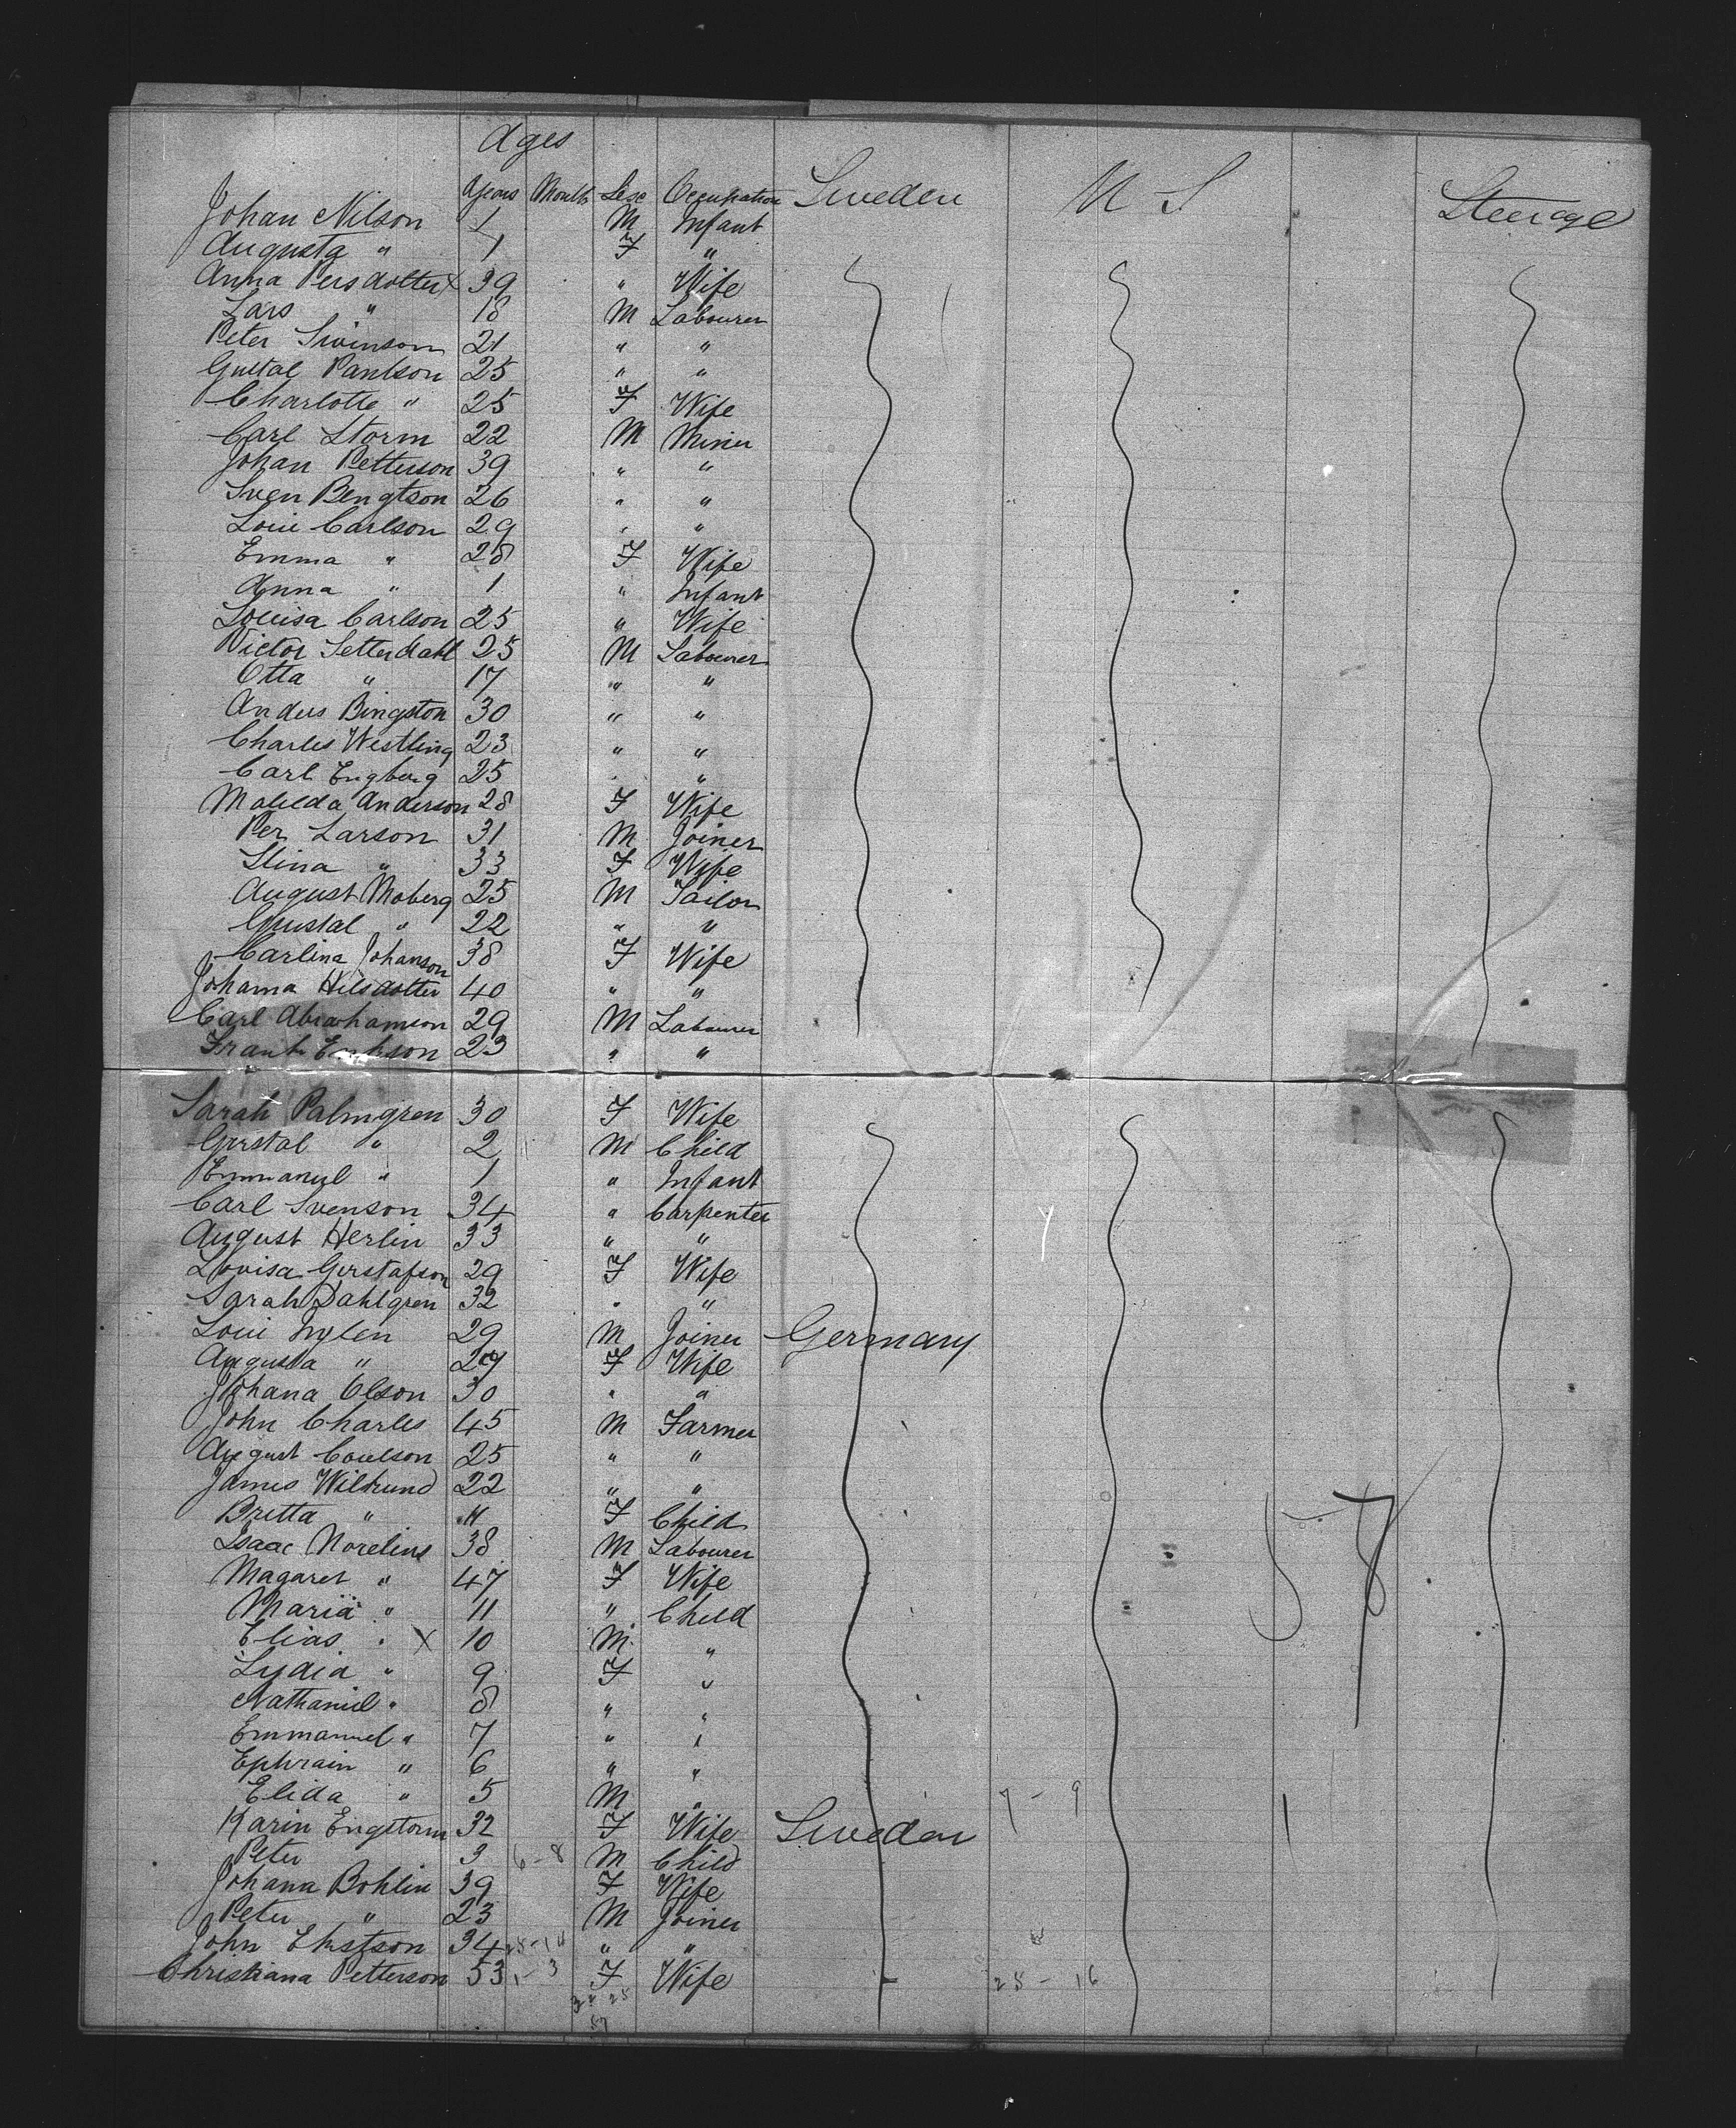 Ages
Years Months Sex Occupation Sweden U S Steerage
Johan Nilson 1 M Infant
Augusta " 1 F "
Anna Persdotter x 39 " Wife
Lars " 18 M Labourer
Peter Swinson 21 " "
Gustal Paulson 25 " "
Charlotte " 25 F Wife
Carl Storm 22 M Miner
Johan Petterson 39 " "
Sven Bengtson 26 " "
Loui Carlson 29 " "
Emma " 28 F Wife
Anna " 1 " Infant
Louisa Carlson 25 " Wife
Victor Setterdahl 25 M Labourer
Otta " 17 " "
Andus Bingston 30 " "
Charles Westling 23 " "
Carl Engberg 25 " "
Matilda Anderson 28 F Wife
Per Larson 31 M Joiner
Stina " 33 F Wife
August Moberg 25 M Tailor
Gustal " 22 " "
Carlina Johanson 38 F Wife
Johanna Nilsdotter 40 " "
Carl Abrahamson 29 M Labourer
Frank Erikson 23 " "
Sarah Palmgren 30 F Wife
Gustal " 2 M Child
Emmanuel " 1 " Infant
Carl Svenson 34 " Carpenter
August Herlin 33 " "
Lovisa Gustafson 29 F Wife
Sarah Dahlgren 32 " "
Loui 29 M Joiner Germany
Augusta " 29 F Wife
Johana Olson 30 " "
John Charles 45 M Farmer
August Coulson 25 " "
James Wiklund 22 " "
Britta " 11 F Child
Isaac Norelius 38 M Labourer
Magaret " 47 F Wife
Maria " 11 " Child
Elias " x 10 M "
Lydia " 9 F "
Nathaniel " 8 " "
Emmanuel " 7 " "
Ephrain " 6 " "
Elida " 5 M " 7 - 9
Karin Engstorm 32 F Wife Sweden
Peter 3 6-8 M Child
Johana Bohlin 39 F Wife
Peter " 23 M Joiner
John 34 25-14 " "
Christiana Petterson 53 1-3 F Wife 25 - 16
32 25
57
57